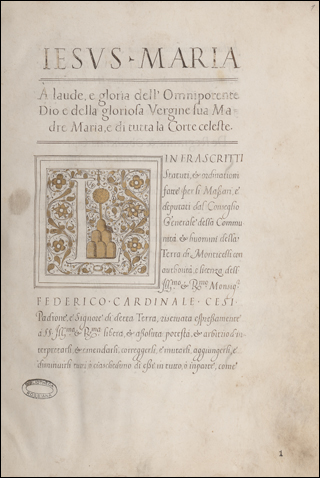 IESVS · MARIA
A laude, e gloria dell' Omnipotente
Dio e della gloriosa Vergine sua Ma
dre Maria, e di tutta la Corte celeste.
I
INFRASCRITTI
Statuti, & ordinationi
fatte per li Massari, e
deputati dal Conseglio
Generale della Commu
nità & huomini della
Terra di Monticelli con
authorità, e licenza dell'
Ill.mo & R.mo Monsig.r
FEDERICO CARDINALE CESI
Padrone, e Signore di detta Terra, riservata espressamente
a S.S. Ill.ma & R.ma libera, & assoluta potestà, & arbitrio d'in
terpretarli, & emendarli, correggerli, e mutarli, aggiungerli, e
diminuirli tutti, ò ciascheduno di essi in tutto, ò in parte, come
1